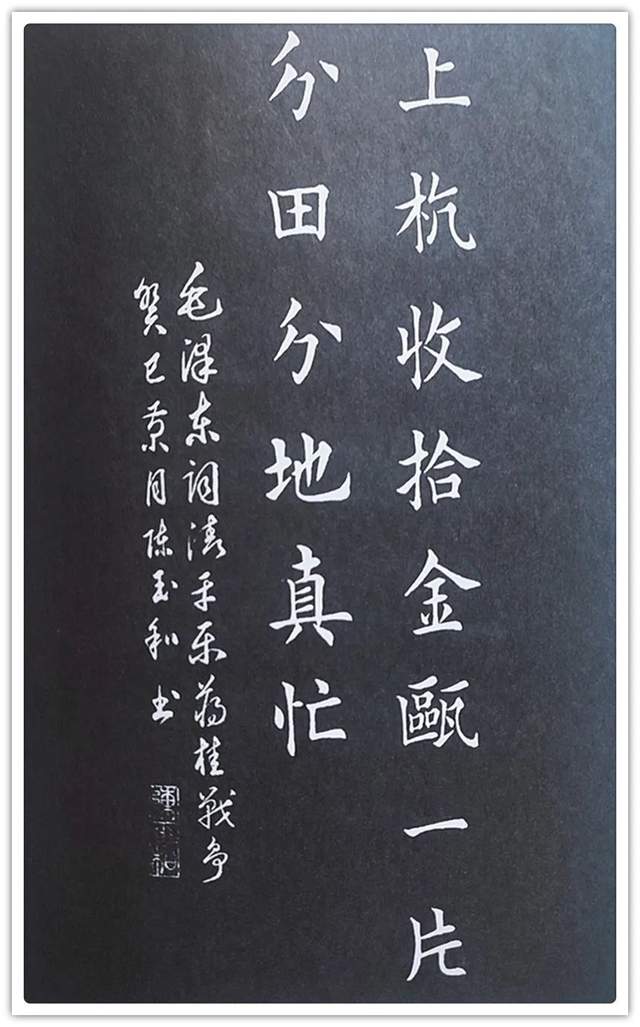 上杭收拾金甌一片
分田分地真忙
毛泽东词清平乐蒋桂戰争
癸巳月陈玉和书